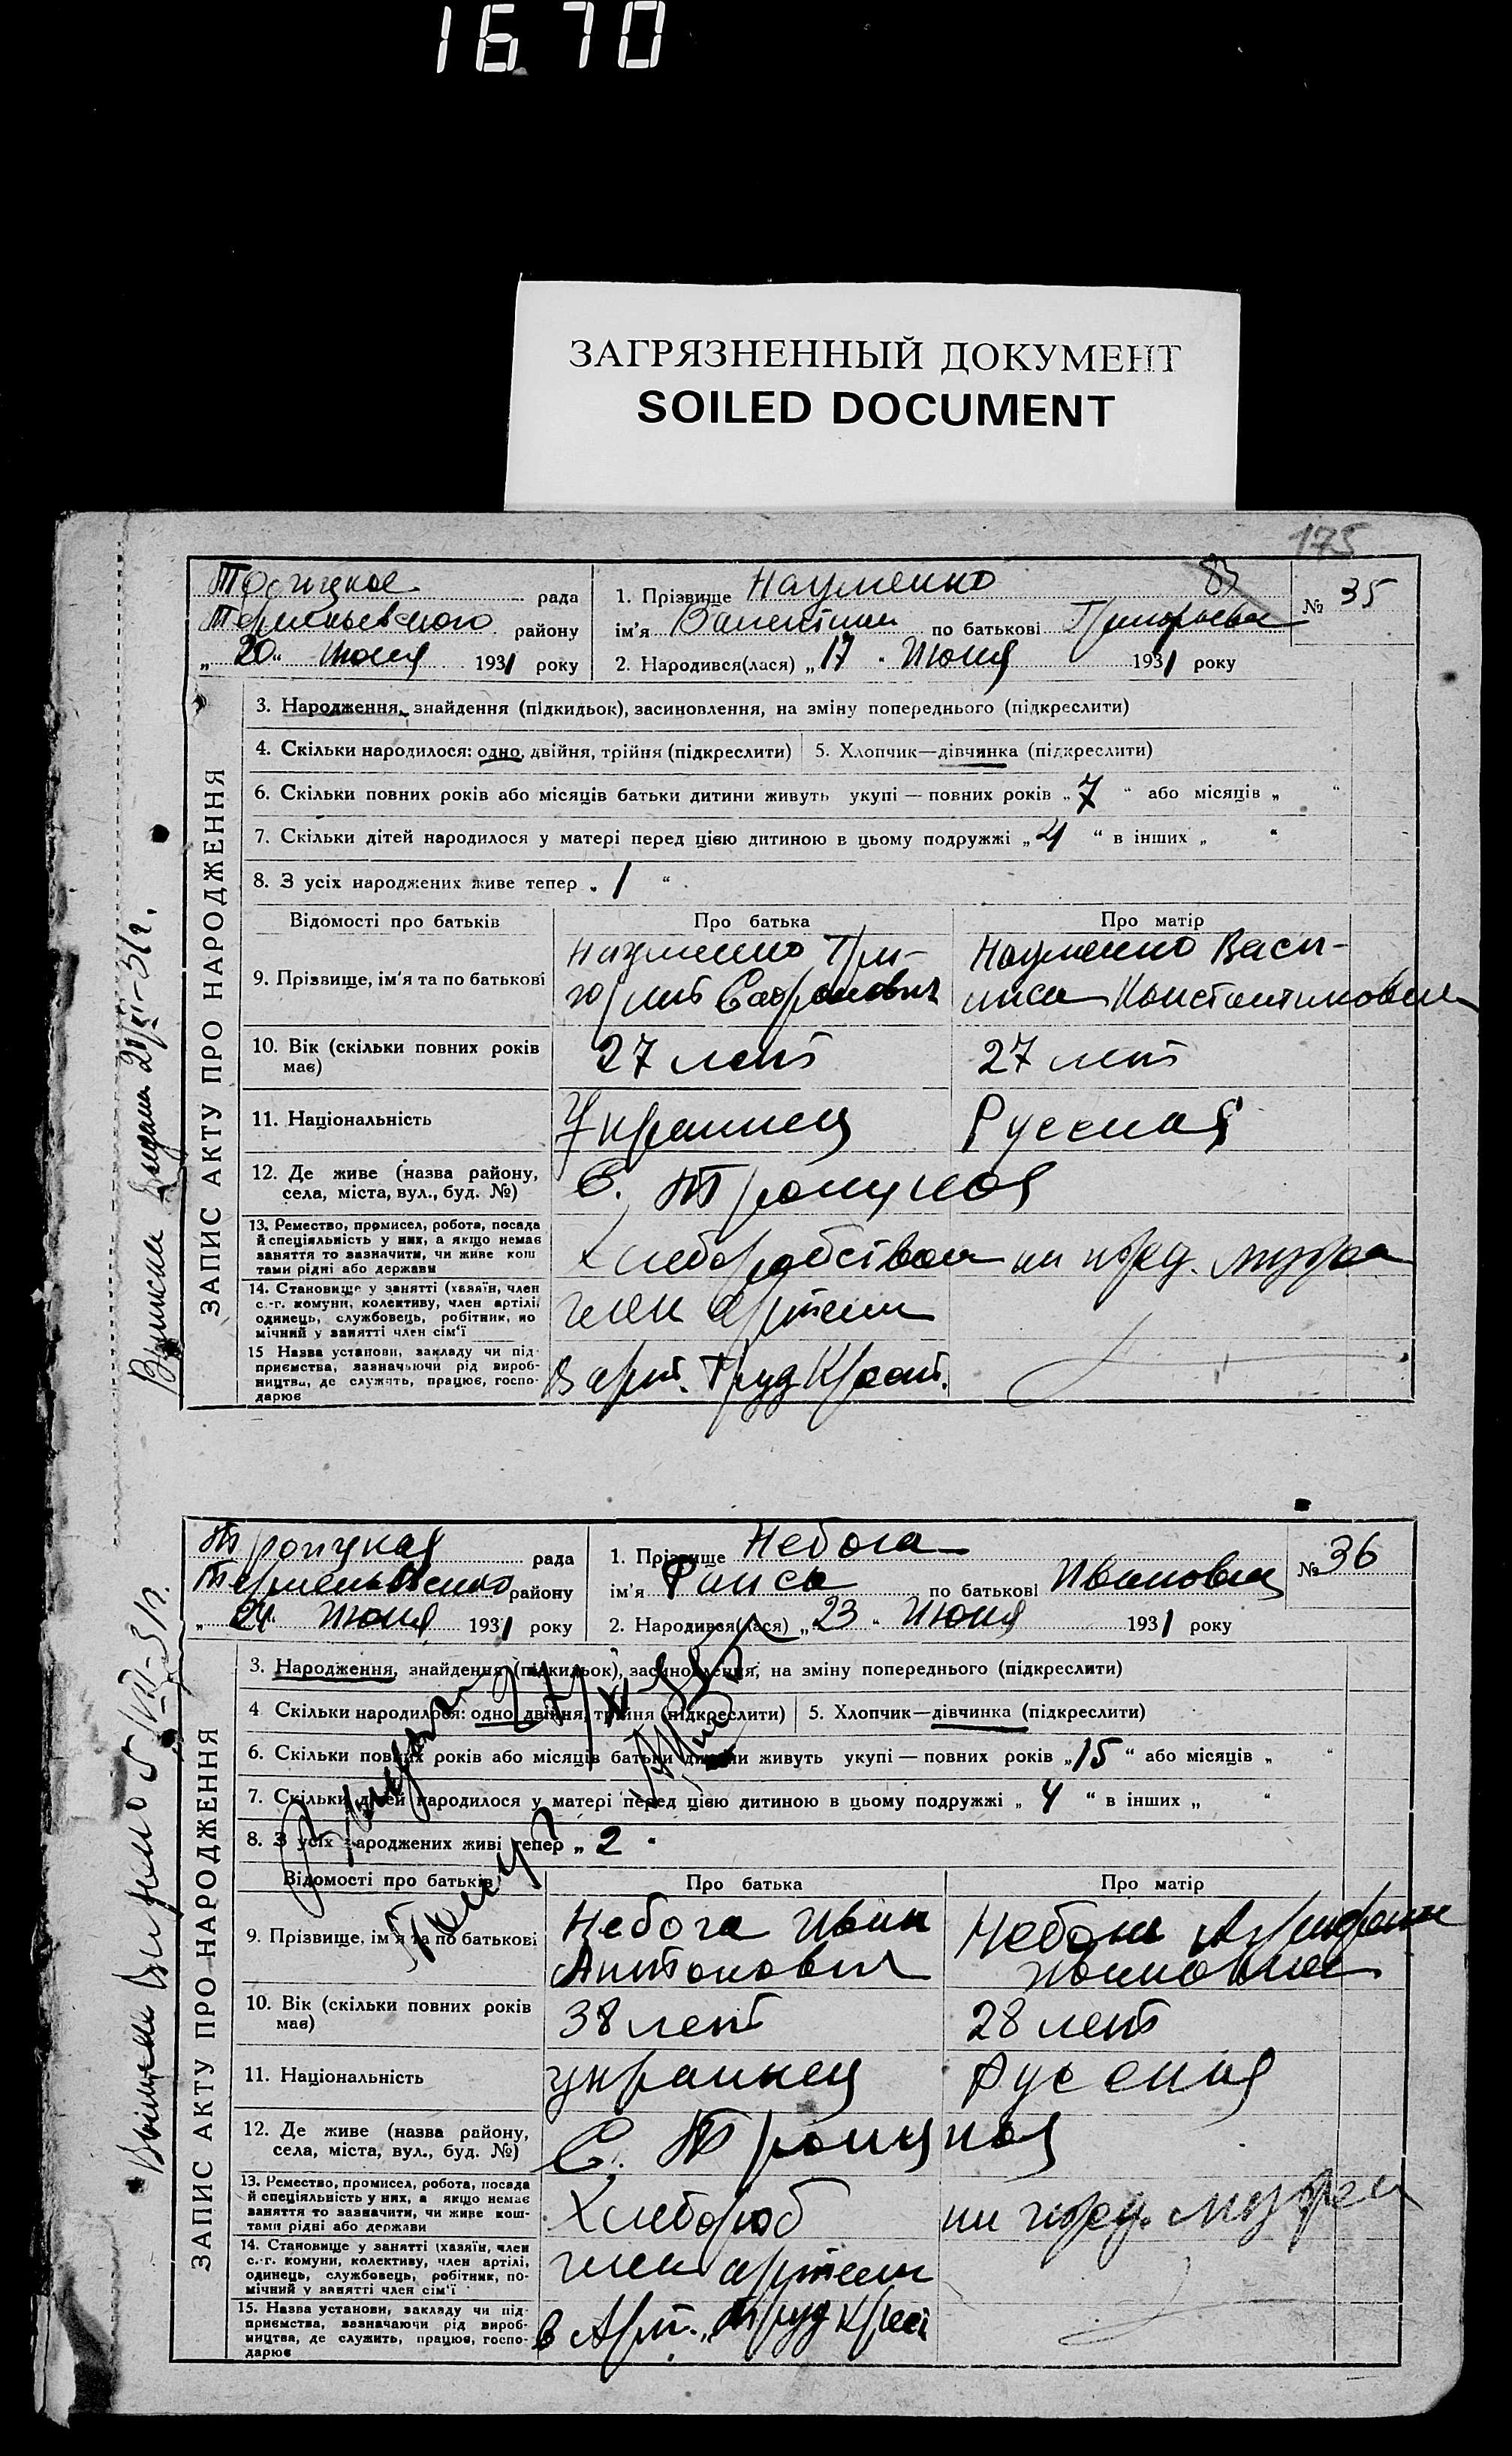 16.70
ЗАГРЯЗНЕННЫЙ ДОКУМЕНТ
SOILED DOCUMENT
175
рада
району
„20“ Июня 1931 року
1. Прізвище Науменко
ім'я Валентина по батькові Григорьевна
2. Народився(лася) „17“ Июня 1931 року
№ 35
ЗАПИС АКТУ ПРО НАРОДЖЕННЯ
3. Народження, знайдення (підкидьок), засиновлення, на зміну попереднього (підкреслити)
4. Скільки народилося: одно, двійня, трійня (підкреслити) 5. Хлопчик—дівчинка (підкреслити)
6. Скільки повних років або місяців батьки дитини живуть укупі — повних років „7“ або місяців „ “
7. Скільки дітей народилося у матері перед цією дитиною в цьому подружжі „4“ в інших „ “
8. З усіх народжених живе тепер „1“
Відомості про батьків Про батька Про матір
9. Прізвище, ім'я та по батькові
Науменко Гри-
горий Сафронович
Науменко Васи-
лиса Константиновна
10. Вік (скільки повних років має) 27 лет 27 лет
11. Національність Украинец Русская
12. Де живе (назва району,
села, міста, вул., буд. №) С. Троицкое
13. Ремество, промисел, робота, посада
й спеціяльність у них, а якщо немає
заняття то зазначити, чи живе кош
тами рідні або держави
Хлеборобством на ижд. мужа
14. Становище у занятті (хазяїн, член
с.-г. комуни, колективу, член артілі,
одинець, службовець, робітник, по
мічний у занятті член сім'ї
член артели
15 Назва установи, закладу чи під-
приємства, зазначаючи рід вироб-
ництва, де служить, працює, госпо-
дарює
В арт. Труд Крест.
Троицкая рада
району
„24“ Июня 1931 року
1. Прізвище Небога
ім'я Раиса по батькові Ивановна
2. Народився(лася) „23“ Июня 1931 року
№ 36
ЗАПИС АКТУ ПРО НАРОДЖЕННЯ
3. Народження, знайдення (підкидьок), засиновлення, на зміну попереднього (підкреслити)
4 Скільки народилося: одно, двійня, трійня (підкреслити) 5. Хлопчик—дівчинка (підкреслити)
6. Скільки повних років або місяців батьки дитини живуть укупі — повних років „15“ або місяців „ “
7. Скільки дітей народилося у матері перед цією дитиною в цьому подружжі „4“ в інших „ “
8. З усіх народжених живі тепер „2“
Відомості про батьків Про батька Про матір
9. Прізвище, ім'я та по батькові
Небога Иван
Антонович
Небога
Ивановна
10. Вік (скільки повних років має) 38 лет 28 лет
11. Національність украинец Русская
12. Де живе (назва району,
села, міста, вул., буд. №) С. Троицкое
13. Ремество, промисел, робота, посада
й спеціяльність у них, а якщо немає
заняття то зазначити, чи живе кош-
тами рідні або держави
Хлебороб на ижд. мужа
14. Становище у занятті (хазяїн, член
с.-г. комуни, колективу, член артілі,
одинець, службовець, робітник, по-
мічний у занятті член сім'ї
член артели
15. Назва установи, закладу чи під-
приємства, зазначаючи рід вироб-
ництва, де служить, працює, госпо-
дарює
в Арт. „Труд Крест